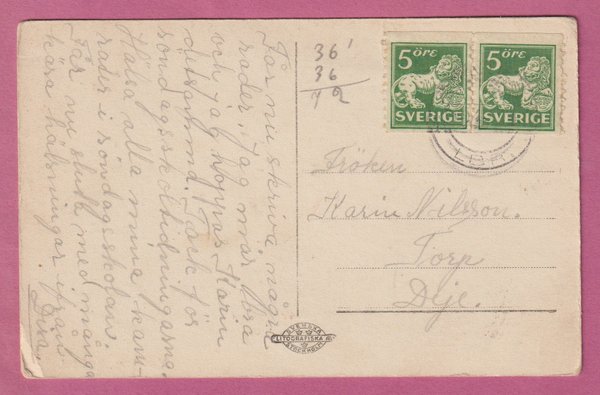 Får nu skriva några
rader. Jag mår bra
och jag hoppas Karin
detsamma. Tack för
söndagsskoltidningarna.
Hälsa alla mina kam-
rater i söndagsskolan
Får nu sluta med många
kära hälsningar ifrån
36
36
5 ÖRE
SVERIGE
5 ÖRE
SVERIGE
Fröken
Karin Nilsson.
Torp
Deje.
SVENSKA
LITOGRAFISKA AB.
STOCKHOLM